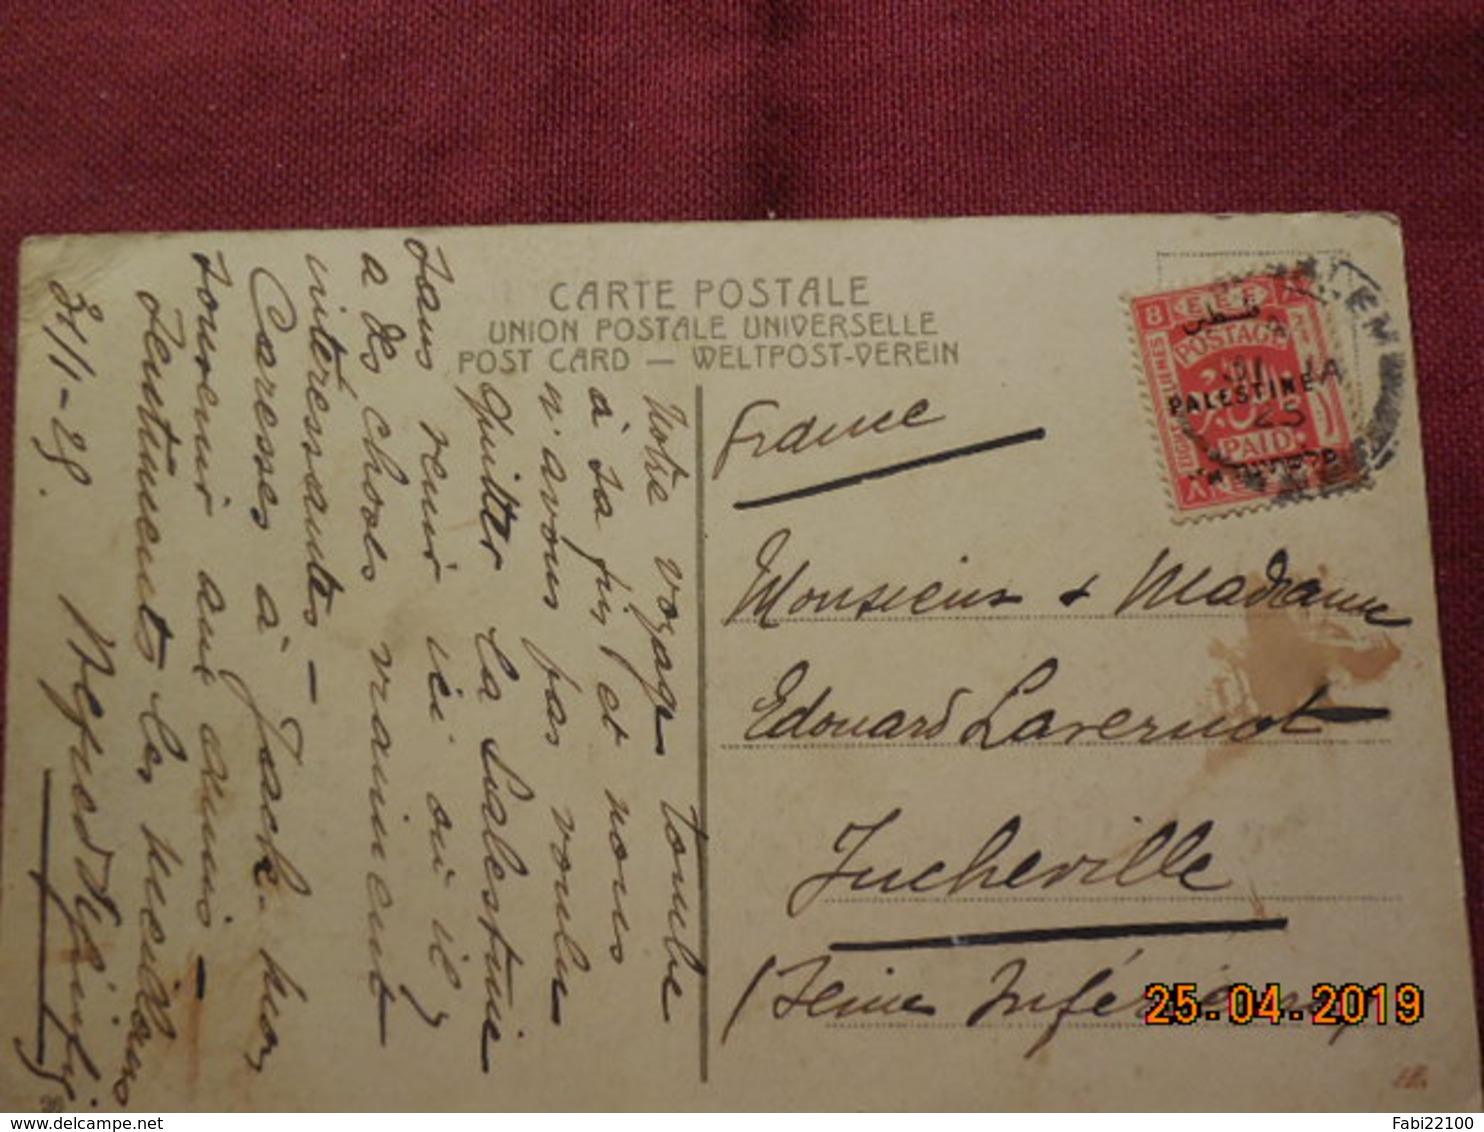 CARTE POSTALE
UNION POSTALE UNIVERSELLE
POST CARD — WELTPOST-VEREIN
8 E.E.F.
POSTAGE
PALESTINE
PAID
France
Monsieur & Madame
Edouard Lavernot
Tucheville
(Seine Inférieure)
Notre voyage touche
à sa fin, et nous
n'avons pas voulu
quitter la Palestine
sans venir ici où il y
a des choses vraiment
intéressantes —
Caresses à Jack. mon
souvenir aux amis —
Sentiments les meilleurs
31/1-25.
25.04.2019
Fabi22100